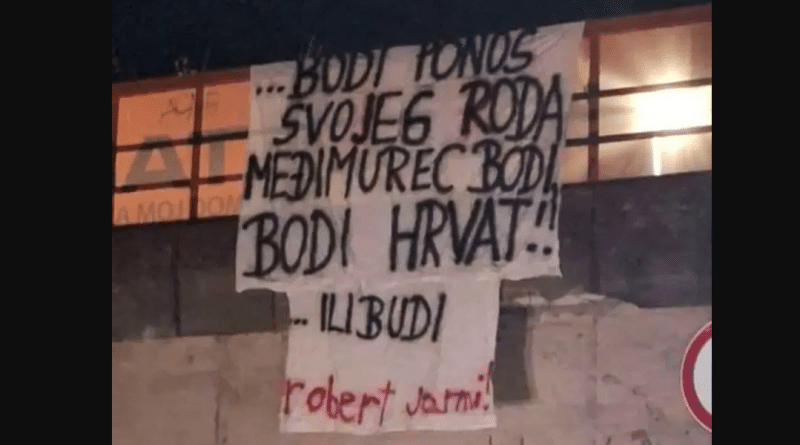 ...BODI PONOS
SVOJEG RODA
MEĐIMUREC BODI,
BODI HRVAT!!
... ILI BUDI
robert jarni!